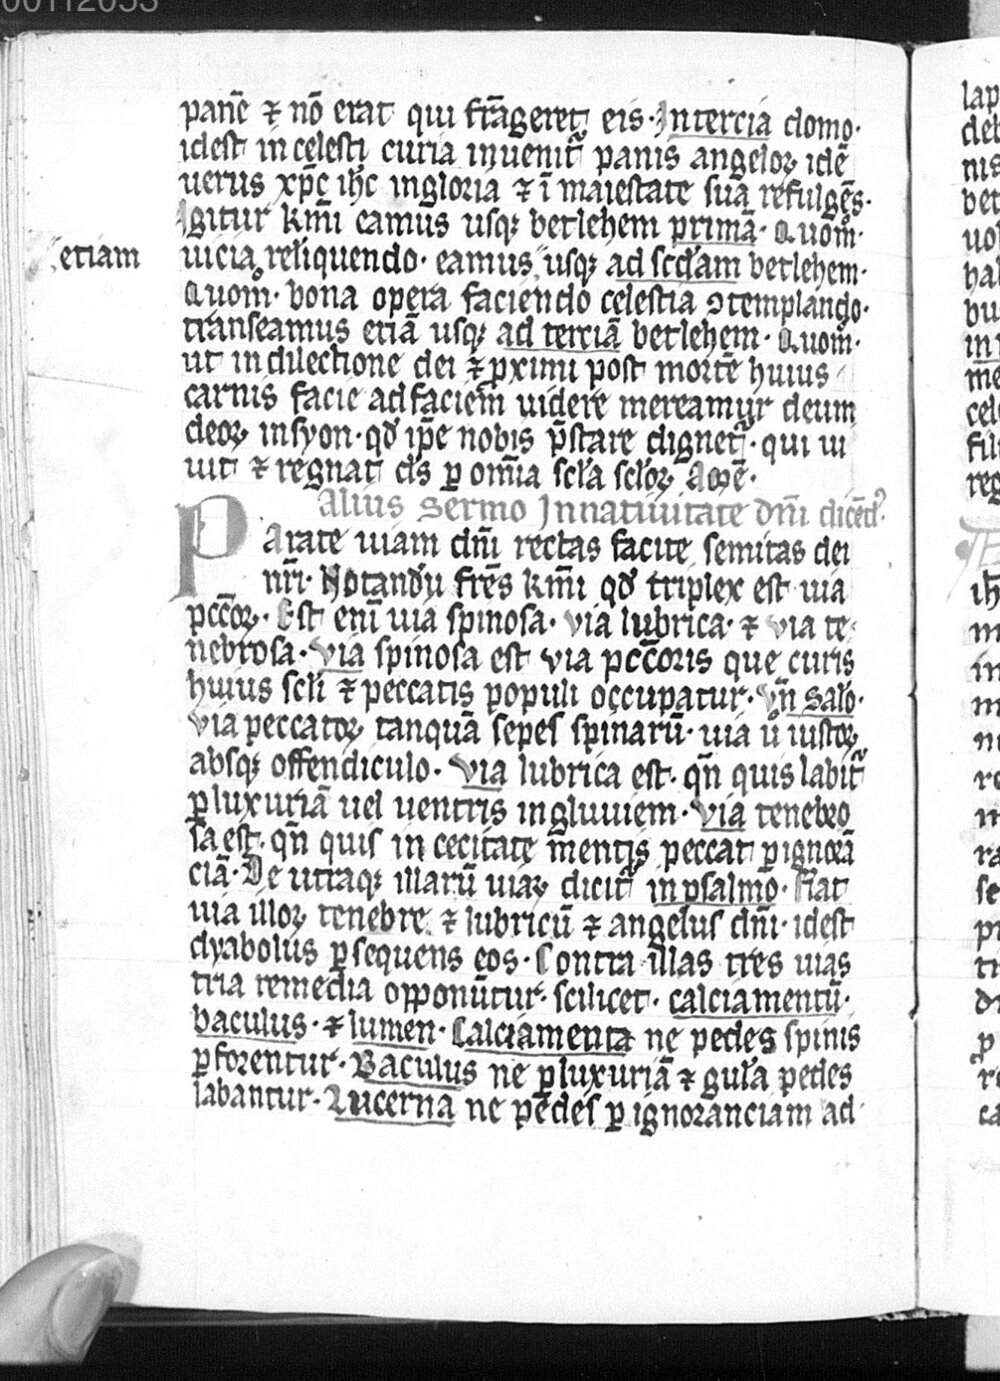 00112053
panē ⁊ nō erat qui frāgeret eis· Intercia domo·
idest incelesti curia inuenit᷑ panis angeloꝝ idē
uerus xp̄c ihc ingloria ⁊ ī maiestate sua refulgēs·
Igitur kmī eamus usqꝫ betlehem primā· Quom̄·
uicia reliquendo· eamus usqꝫ ad scd̄am betlehem·
etiam
Quom̄· bona opera faciendo celestia ꝯtemplando·
transeamus etiā usqꝫ ad terciā betlehem· Quom̄·
ut indilectione dei ⁊ ꝓximi post mortē huius
carnis facie adfaciem uidere mereamur deum
deoꝝ insyon· qd̄ ip̄e nobis p̄stare dignet᷑· qui ui
uit ⁊ regnat ds̄ ꝑ omīa scl̄a scl̄oꝝ Amē·
Alius Sermo Innatiuitate dn̄i dicēd᷑·
Parate uiam dn̄i rectas facite semitas dei
nr̄i· Notandū fr̄es kmī qd̄ triplex est uia
pcc̄oꝝ· Est enī uia spinosa· via lubrica· ⁊ via te
nebrosa· Via spinosa est via pcc̄oris que curis
huius scl̄i ⁊ peccatis populi occupatur· Vn̄ Salo·
via peccatoꝝ tanquā sepes spinarū· uia ū iustoꝝ
absqꝫ offendiculo· Via lubrica est· qn̄ quis labit᷑
ꝑ luxuriā uel uentris ingluuiem· Via tenebro
sa est· qn̄ quis in cecitate mentis peccat ꝑ ignorā
ciā· De utraqꝫ illarū uiaꝝ dicit᷑ in psalmo· Fiat
uia illoꝝ tenebre ⁊ lubricū ⁊ angelus dn̄i· idest
dyabolus ꝑsequens eos· Contra illas tres uias
tria remedia opponūtur· scilicet· calciamentū·
baculus· ⁊ lumen· Calciamenta ne pedes spinis
ꝑforentur· Baculus ne ꝑ luxuriā ⁊ gul̄a pedes
labantur· Lucerna ne pedes ꝑ ignoranciam ad